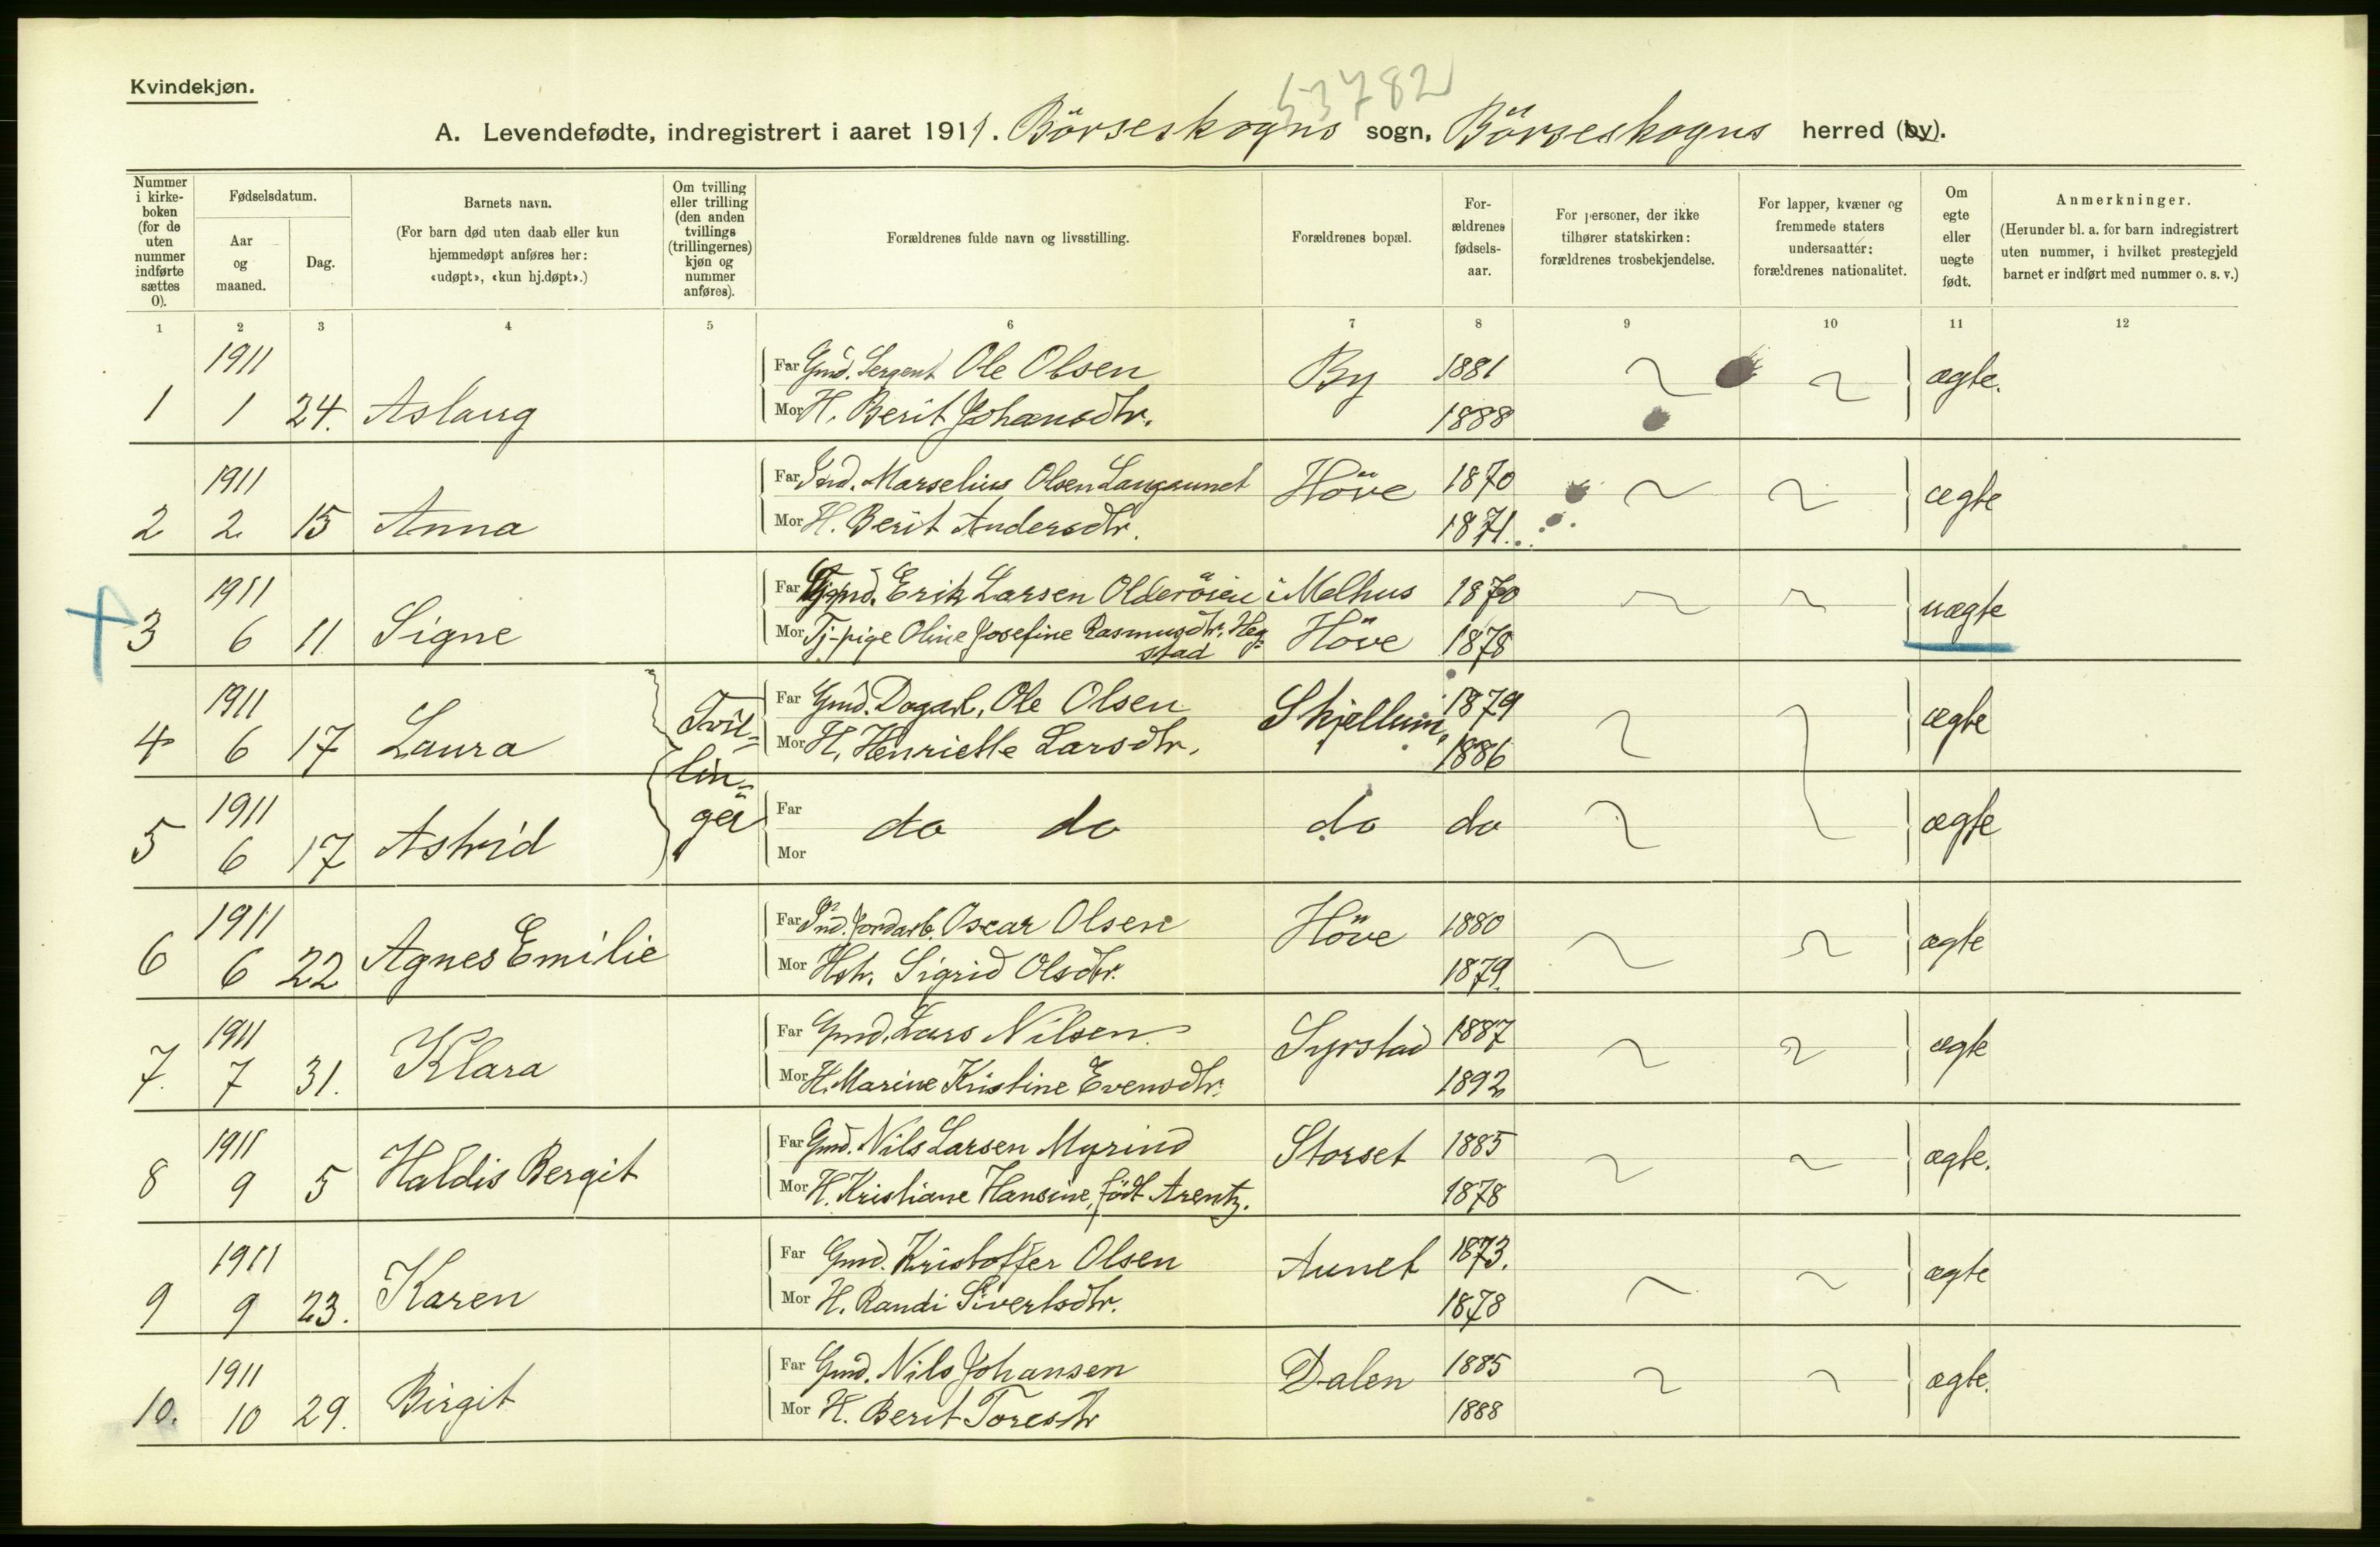 Kvindekjøn.
53782
A. Levendefødte, indregistrert i aaret 1911. Börseskogns sogn, Börseskogns herred (by).
Nummer i kirke-boken (for de uten nummer indførte sættes 0).
Fødselsdatum.
Aar og maaned.
Dag.
Barnets navn.
(For barn død uten daab eller kun hjemmedøpt anføres her: «udøpt», «kun hj.døpt».)
Om tvilling eller trilling (den anden tvillings (trillingernes) kjøn og nummer anføres).
Forældrenes fulde navn og livsstilling.
Forældrenes bopæl.
For-ældrenes fødsels-aar.
For personer, der ikke tilhører statskirken: forældrenes trosbekjendelse.
For lapper, kvæner og fremmede staters undersaatter: forældrenes nationalitet.
Om egte eller uegte født.
Anmerkninger.
(Herunder bl. a. for barn indregistrert uten nummer, i hvilket prestegjeld barnet er indført med nummer o. s. v.)
1 2 3 4 5 6 7 8 9 10 11 12
1911 Far Gmd. Sergent Ole Olsen By 1881 ægte.
1 1 24. Aslaug Mor H. Berit Johansdtr. 1888
1911 Far Ind. Marselius Olsen Langaunet Höve 1870 ægte
2 2 15 Anna Mor H. Berit Andersdtr. 1871.
1911 Far Erik Larsen Olderöien i Melhus 1870 uægte
3 6 11 Signe Mor Tj-pige Oline Josefine Rasmusdtr. Heg=stad Höve 1878
1911 Tvil= Far Gmd. Dagarb. Ole Olsen Skjellum, 1879 ægte
4 6 17 Laura Mor H. Henriette Larsdtr. 1886
lin=
1911 ger Far do do do do ægte
5 6 17 Astrid Mor
1911 Far Ind. Jordarb. Oscar Olsen Höve 1880 ægte
6 6 22 Agnes Emilie Mor Hstr. Sigrid Olsdtr. 1879.
1911 Far Gmd. Lars Nilsen Syrstad 1887 ægte
7. 7 31. Klara Mor H. Marine Kristine Evensdtr. 1892
1911 Far Gmd. Nils Larsen Myrind Storset 1885 ægte.
8 9 5 Haldis Bergit Mor H. Kristiane Hansine, född Arentz. 1878
1911 Far Gmd. Kristoffer Olsen Aunet 1873. ægte
9 9 23. Karen Mor H. Randi Sivertsdtr. 1878
1911 Far Gmd. Nils Johansen Dalen 1885 ægte.
10. 10 29. Birgit Mor H. Berit Toresdtr 1888